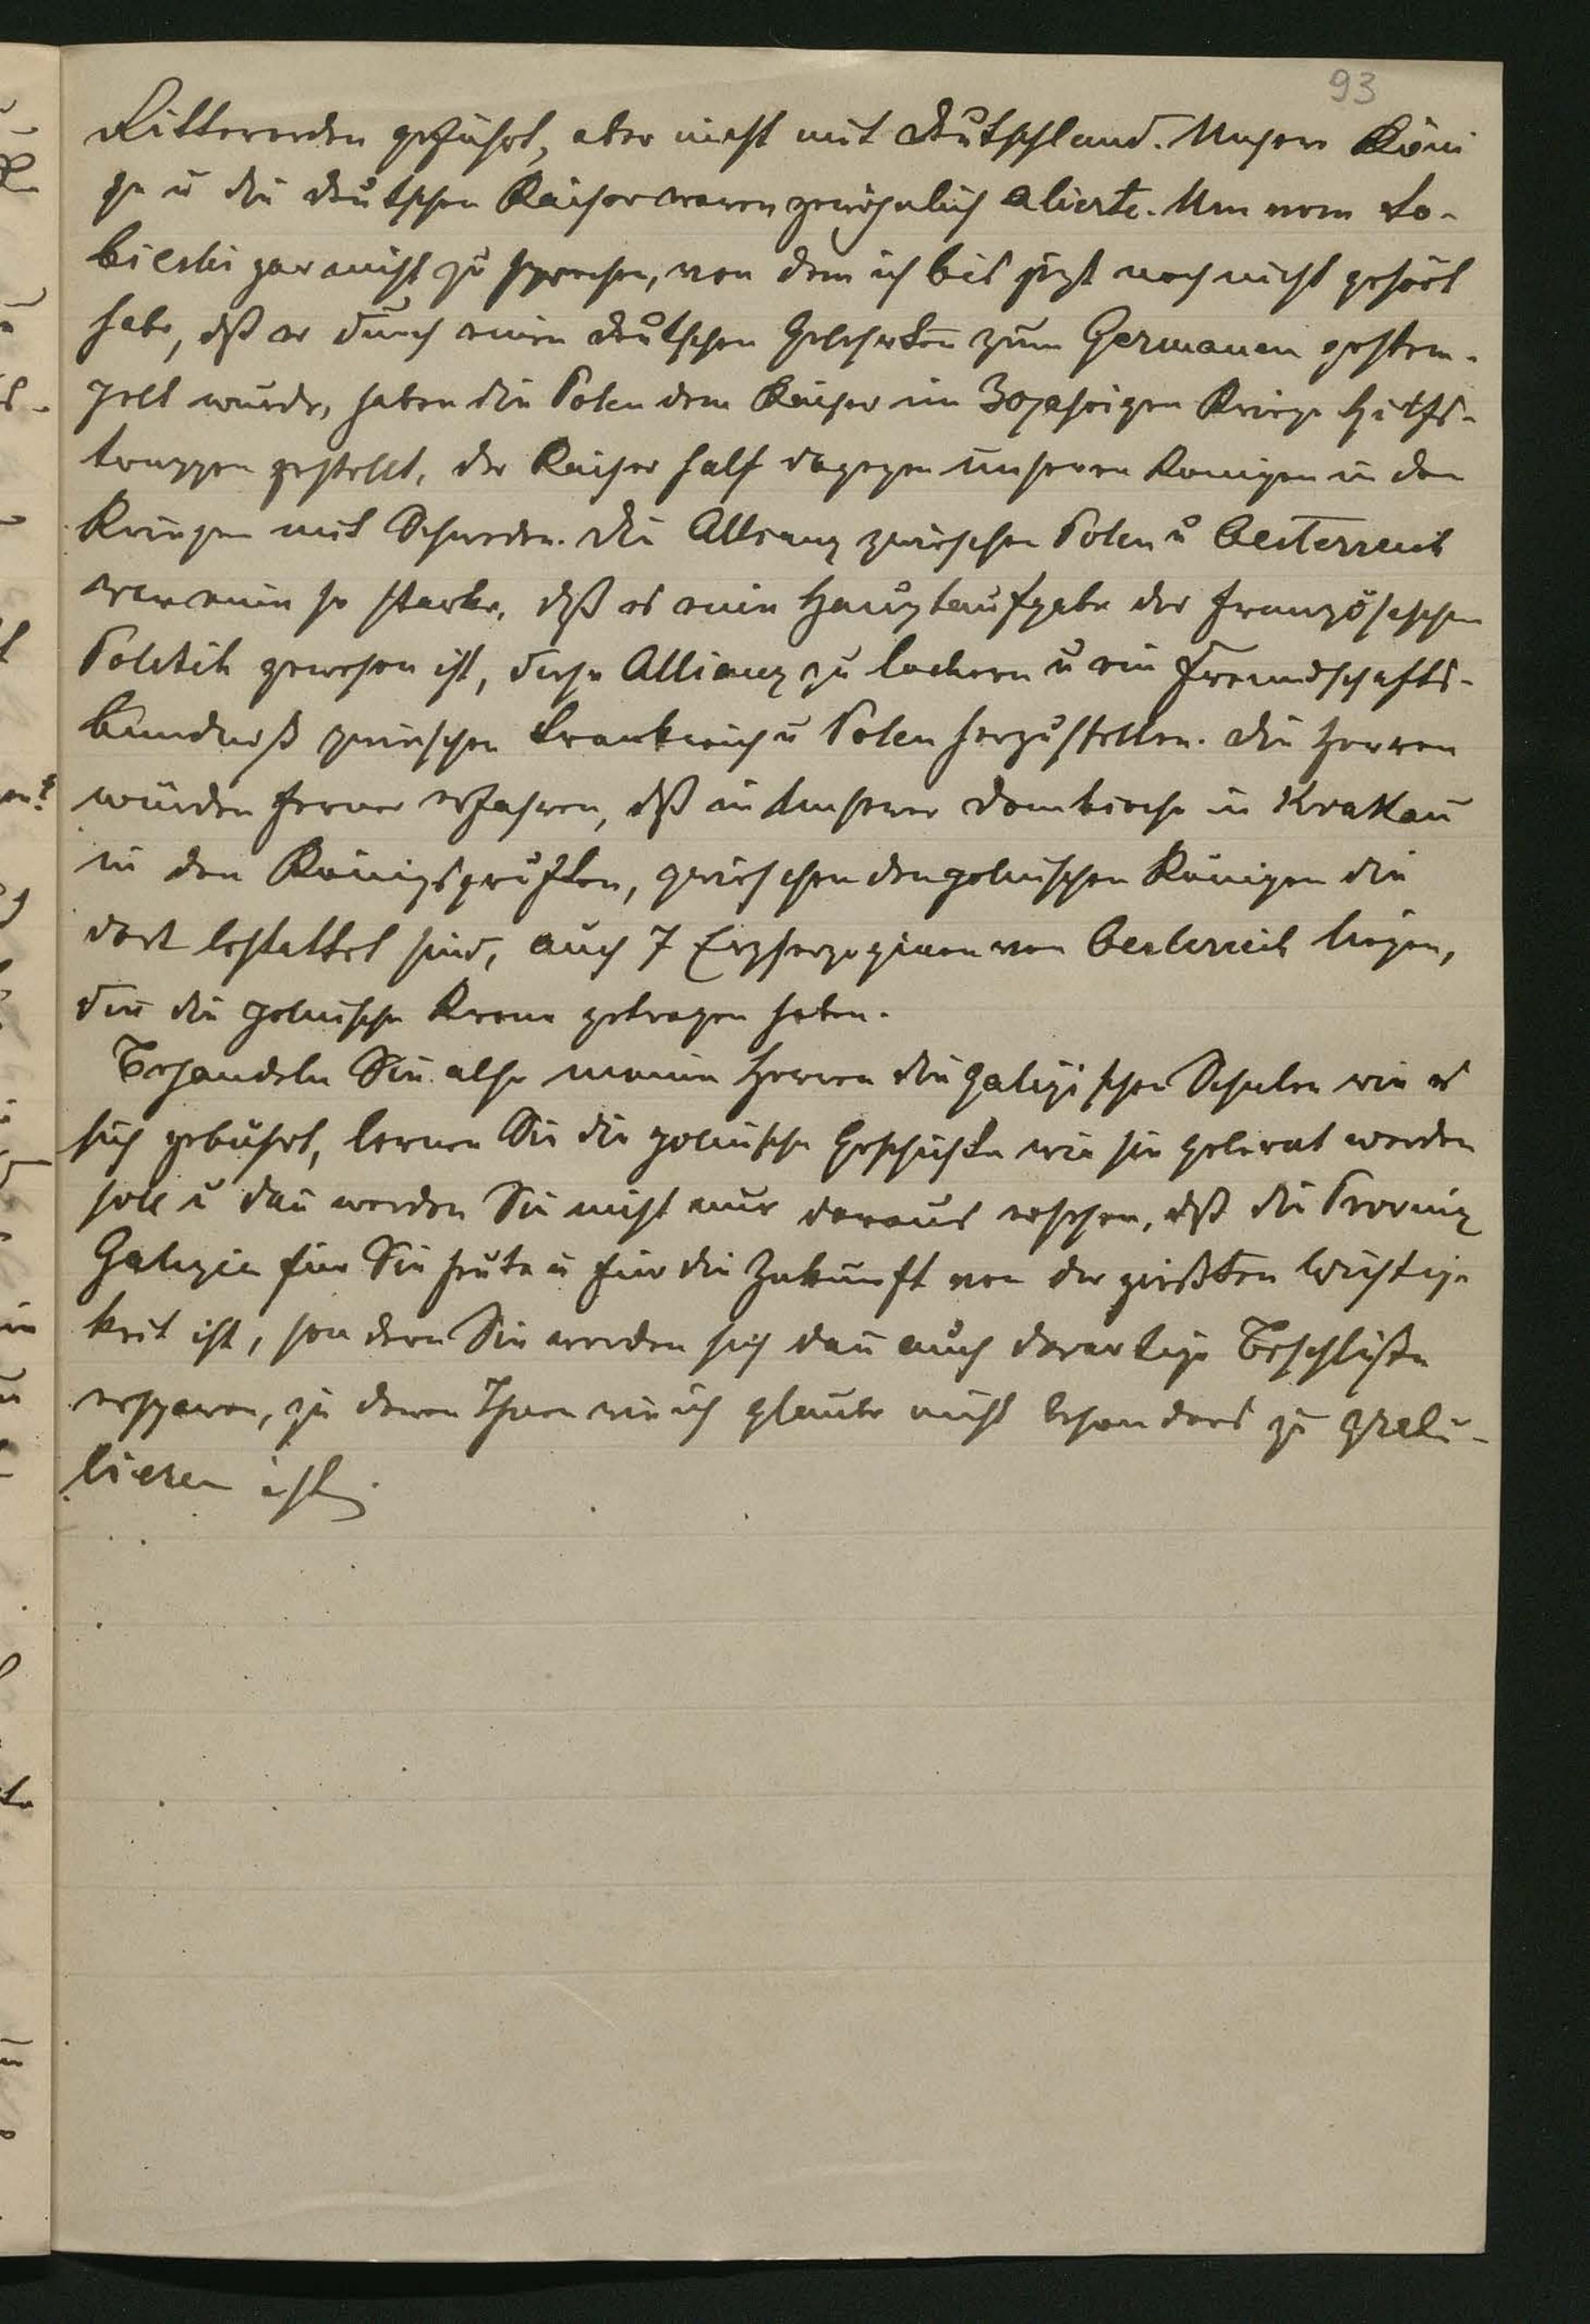 93
Ritterorden geführt, aber nicht mit Deutschland. Unsere Köni
ge u die deutschen Kaiser waren gewöhnlich alierte. Um vom So-
bieski gar nicht zu sprechen, von dem ich bis jezt noch nicht gehört
habe, dß er durch einen deutschen Gelehrten zum Germanen gestem-
pelt wurde, haben die Polen dem Kaiser im 30jahrigen Kriege Hilfs-
truppen gestellt, der Kaiser half dagegen unseren Konigen in den
Kriegen mit Schweden. Die Allianz zwischen Polen u Oesterreich
war eine so starke, dß es eine Hauptaufgabe der französischen
Politik gewesen ist, diese Allianz zu lockern u ein Freundschafts-
bundniß zwischen Frankreich u Polen herzustellen. Die Herren
würden ferner erfahren, dß in unserer Domkirche in Krakau
in den Königsgrüften, zwischen den polnischen Königen die
dort bestattet sind, auch 7 Erzherzoginen von Oesterreich liegen,
die die polnische Krone getragen haben.
Behandeln Sie also meine Herren die galizischen Schulen wie es
sich gebührt, lernen Sie die polnische Geschichte wie sie gelernt werden
soll u dan werden Sie nicht nur daraus ersehen, dß die Provinz
Galizien für Sie heute u für die Zukunft von der größten Wichtig
keit ist, sondern Sie werden sich dan auch derartige Beschlüße
ersparen, zu denen Ihnen wie ich glaube nicht besonders zu gratu-
lieren ist.